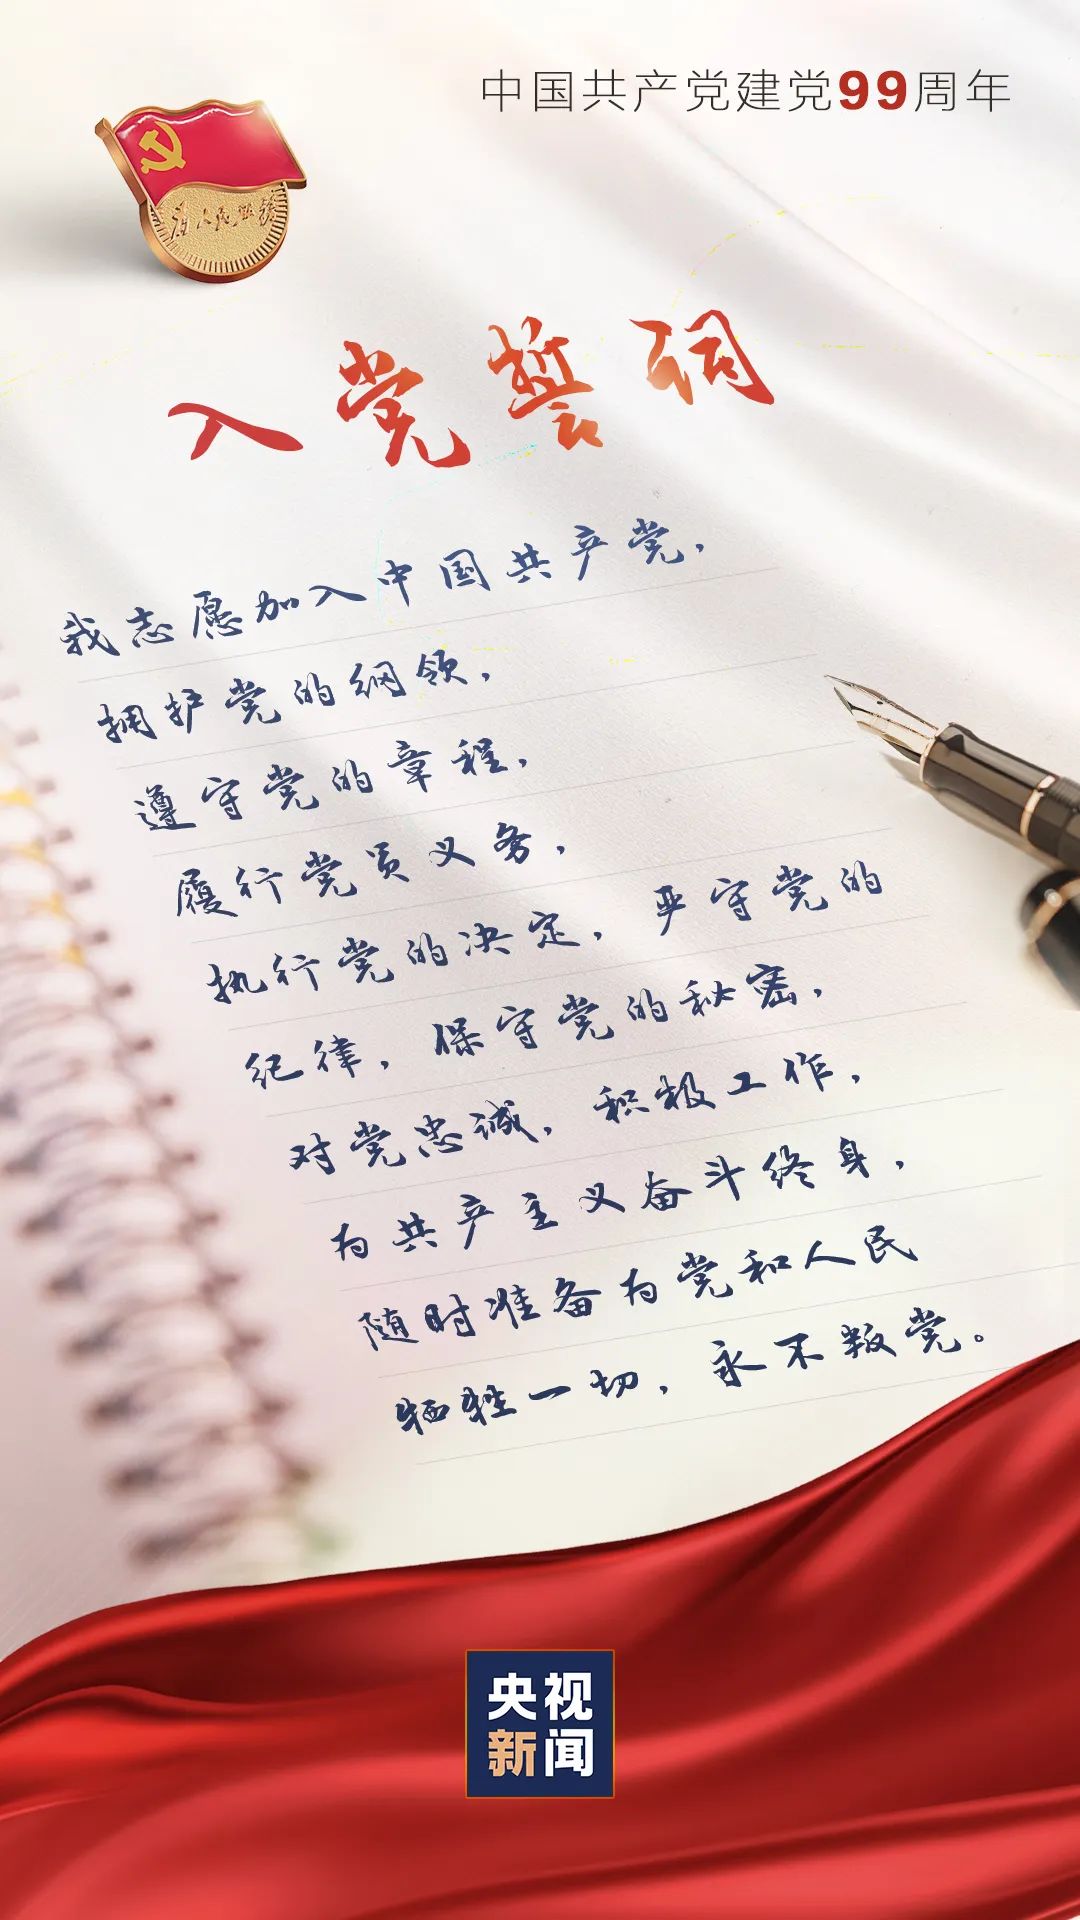 中国共产党建党99周年
为人民服务
入党誓词
我志愿加入中国共产党，
拥护党的纲领，
遵守党的章程，
履行党员义务，
执行党的决定，严守党的
纪律，保守党的秘密，
对党忠诚，积极工作，
为共产主义奋斗终身，
随时准备为党和人民
牺牲一切，永不叛党。
央视
新闻